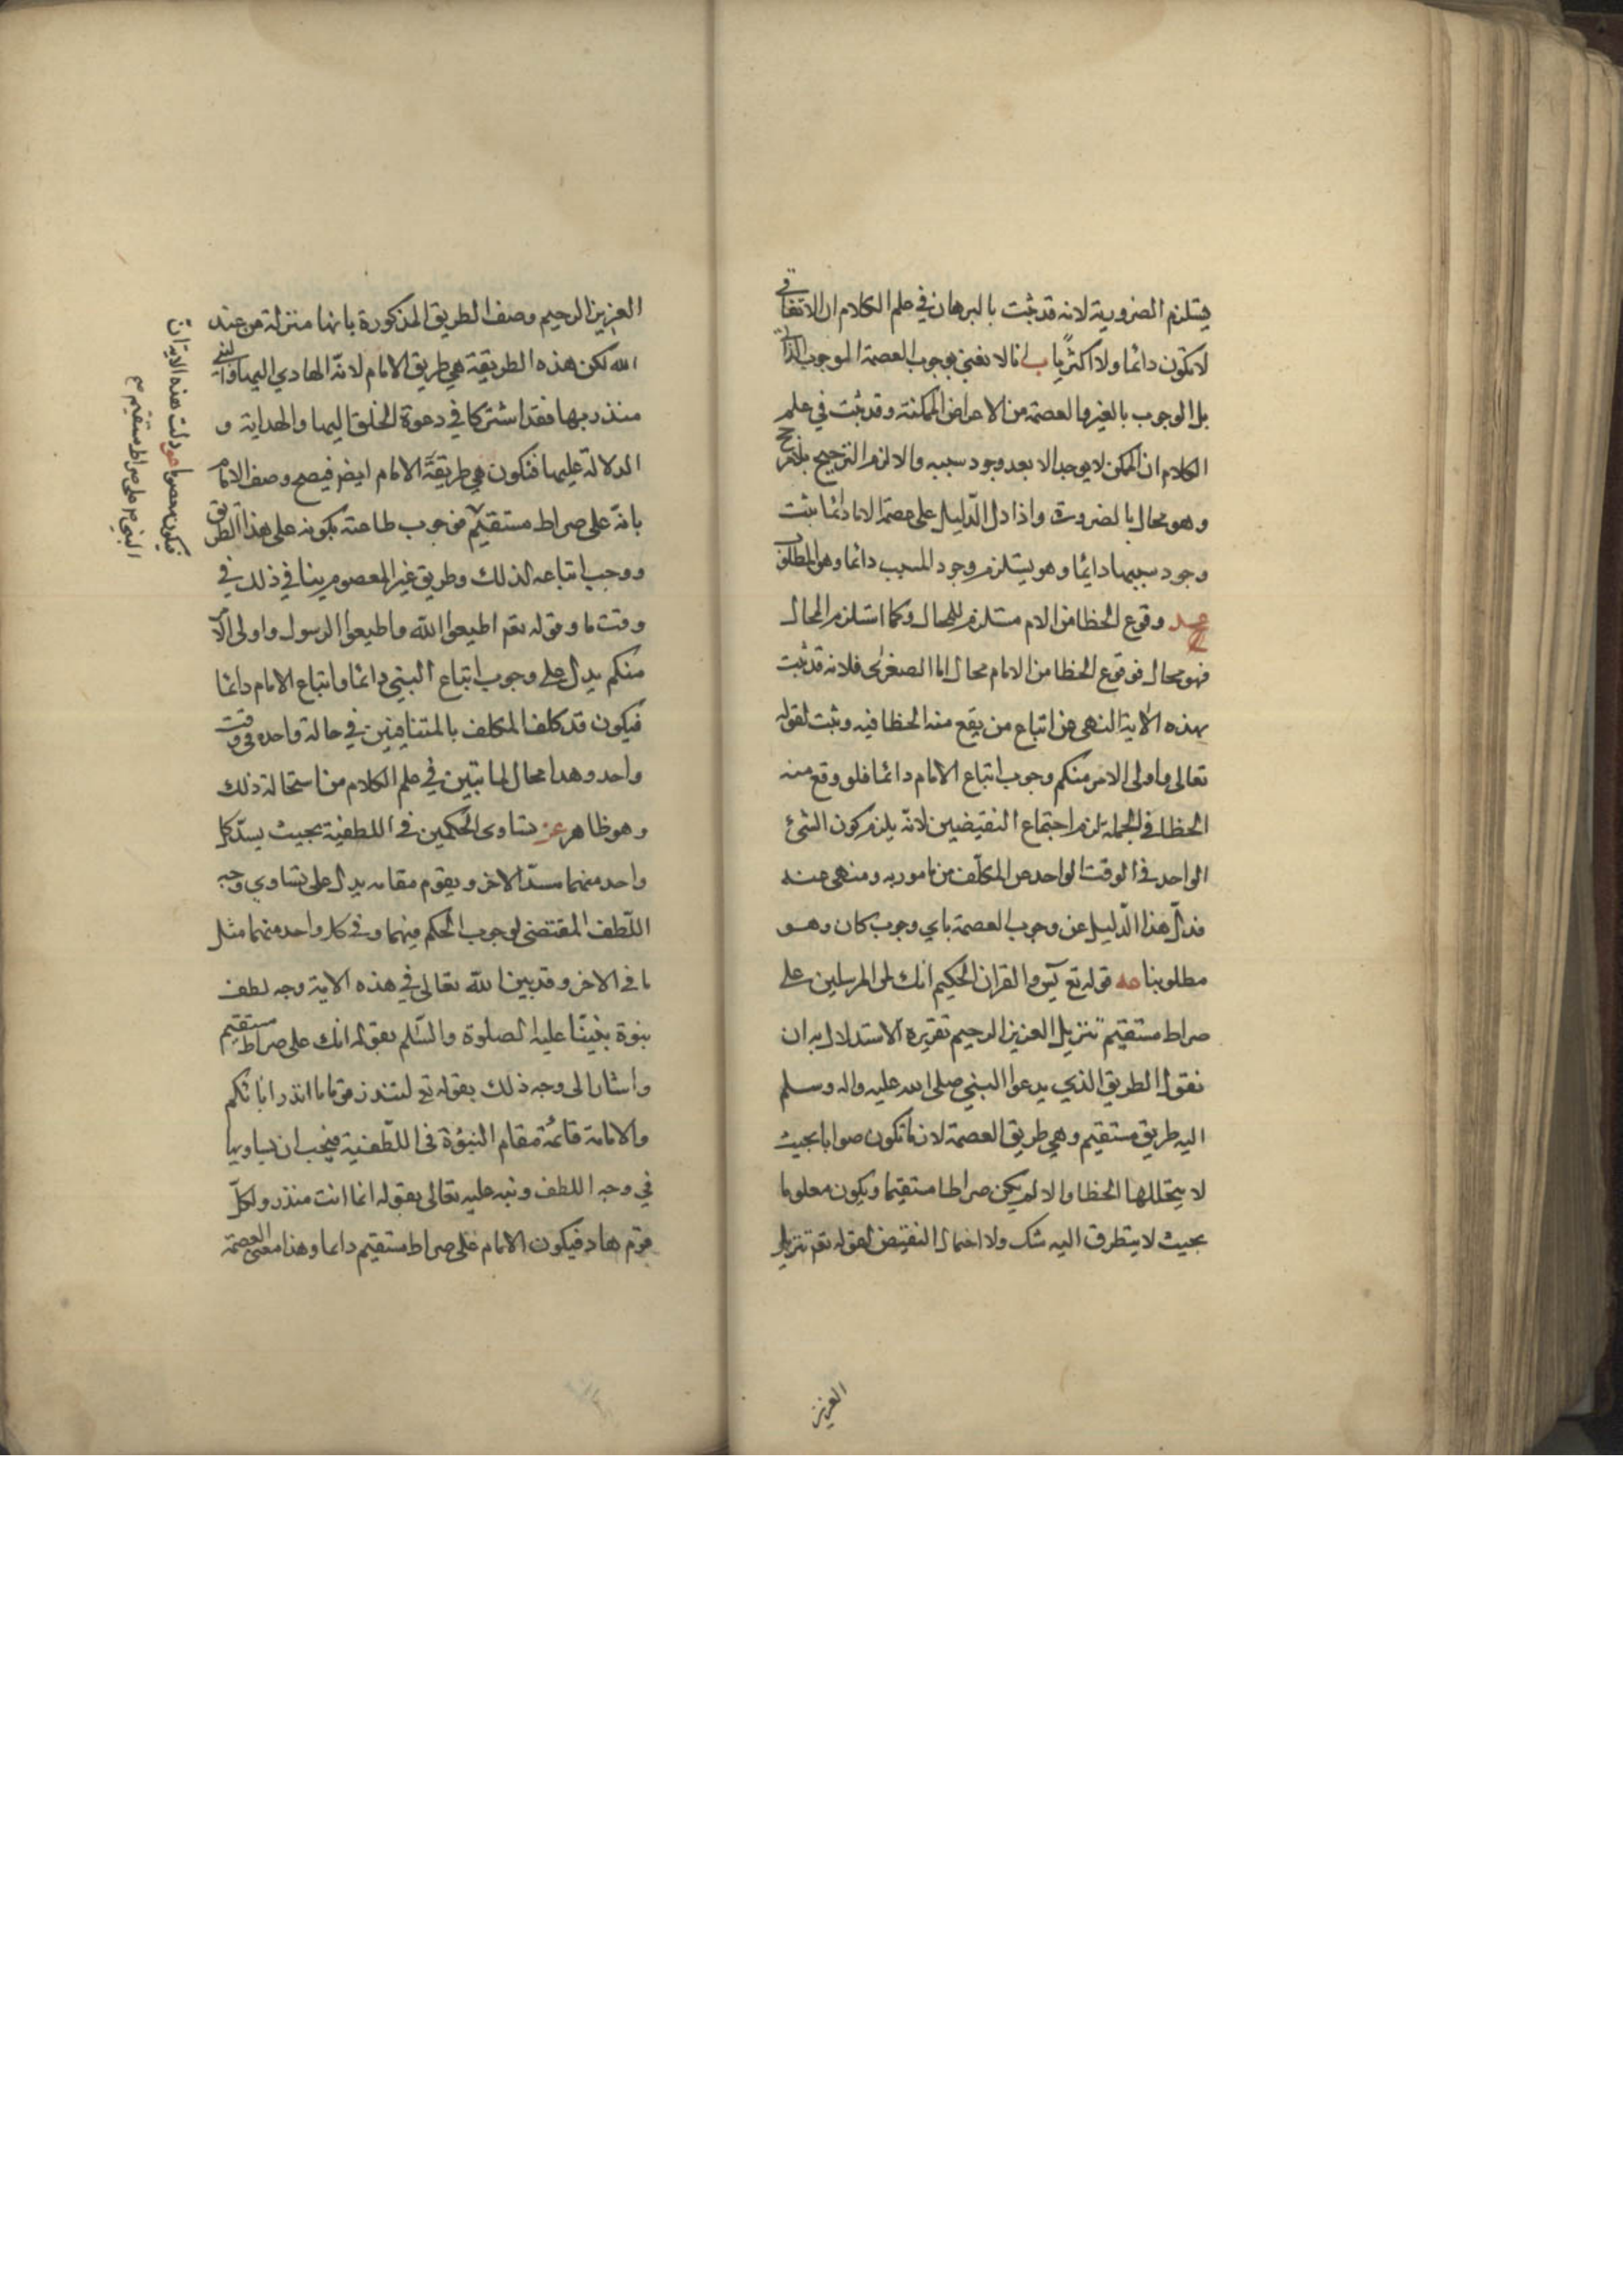 فيستلزم الضرورية لانه قد ثبت بالبرهان في علم الكلام ان الاتفاقي
لا تكون دائما ولا اكثريا ب انا لا نعني بوجوب العصمة الوجوب الذاتي
بل الوجوب بالغير والعصمة من الاعراض الممكنة وقد ثبت في علم
الكلام ان الممكن لا يوجد الا بعد وجود سببه والا لزم الترجيح بلا مرجح
وهو محال بالضرورة واذا دل الدليل على عصمة الامام دائما ثبت
وجود سببها دائما وهو يستلزم وجود المسبب دائما وهو المطلوب
وقوع الخطا من الامام مستلزم للمحال وكلما استلزم المحال
فهو محال فوقوع الخطا من الامام محال اما الصغرى فلانه قد ثبت
بهذه الاية النهى عن اتباع من يقع منه الخطا فيه وثبت لقوله
تعالى واولى الامر منكم وجوب اتباع الامام دائما فلو وقع منه
الخطا في الجملة لزم اجتماع النقيضين لانه يلزم كون الشئ
الواحد في الوقت الواحد من المكلف من مامور به ومنهى عنه
فدل هذا الدليل عن وجوب العصمة باي وجوب كان وهو
مطلوبنا عه قوله تع يس والقران الحكيم انك لمن المرسلين على
صراط مستقيم تنزيل العزيز الرحيم تقريره الاستدلال به ان
نقول الطريق الذي يدعوا النبي صلى الله عليه واله وسلم
اليه طريق مستقيم وهي طريق العصمة لانها تكون صوابا بحيث
لا يتخللها الخطا والا لم يكن صراطا مستقيما ويكون معلوما
بحيث لا يتطرق اليه شك ولا احتمال النقيض لقوله تعم تنزيل
العزيز
العزيز الرحيم وصف الطريق المذكورة بانها منزلة من عند
الله لكن هذه الطريقة هي طريق الامام لانه الهادي اليها والنبي
منذر بها فقد اشتركا في دعوة الخلق اليها والهداية و
الدلالة عليها فتكون هي طريقة الامام ايض فيصح وصف الامام
بانه على صراط مستقيم فوجوب طاعته بكونه على هذا الطريق
ووجب اتباعه لذلك وطريق غير المعصوم ينافي ذلك في
وقت ما وقوله تعم اطيعوا الله واطيعوا الرسول واولى الا
منكم يدل على وجوب اتباع النبي دائما واتباع الامام دائما
فيكون قد كلف المكلف بالمتنافيين في حالة واحده في وقت
واحد وهدا محال لما تبين في علم الكلام من استحالة ذلك
وهو ظاهر عز تساوى الحكمين في اللطفية بحيث يسد كل
واحد منهما مسد الاخر ويقوم مقامه يدل على تساوي وجه
اللطف المقتضى لوجوب الحكم فيهما وفي كل واحد منهما مثل
ما في الاخر وقد بين الله تعالى في هذه الاية وجه لطف
نبوة نبينا عليه الصلوة والسلم بقوله انك على صراط مستقيم
واشار الى وجه ذلك بقوله تع لتنذر قوما ما انذر اباؤكم
والامامة قائمة مقام النبوة في اللطفية فيجب ان يساويها
في وجه اللطف ونبه عليه تعالى بقوله انما انت منذر ولكل
قوم هاد فيكون الامام على صراط مستقيم دائما وهذا معنى العصمة
فيكون معصوما دلت هذه الاية ان
النبي ص على صراط مستقيم